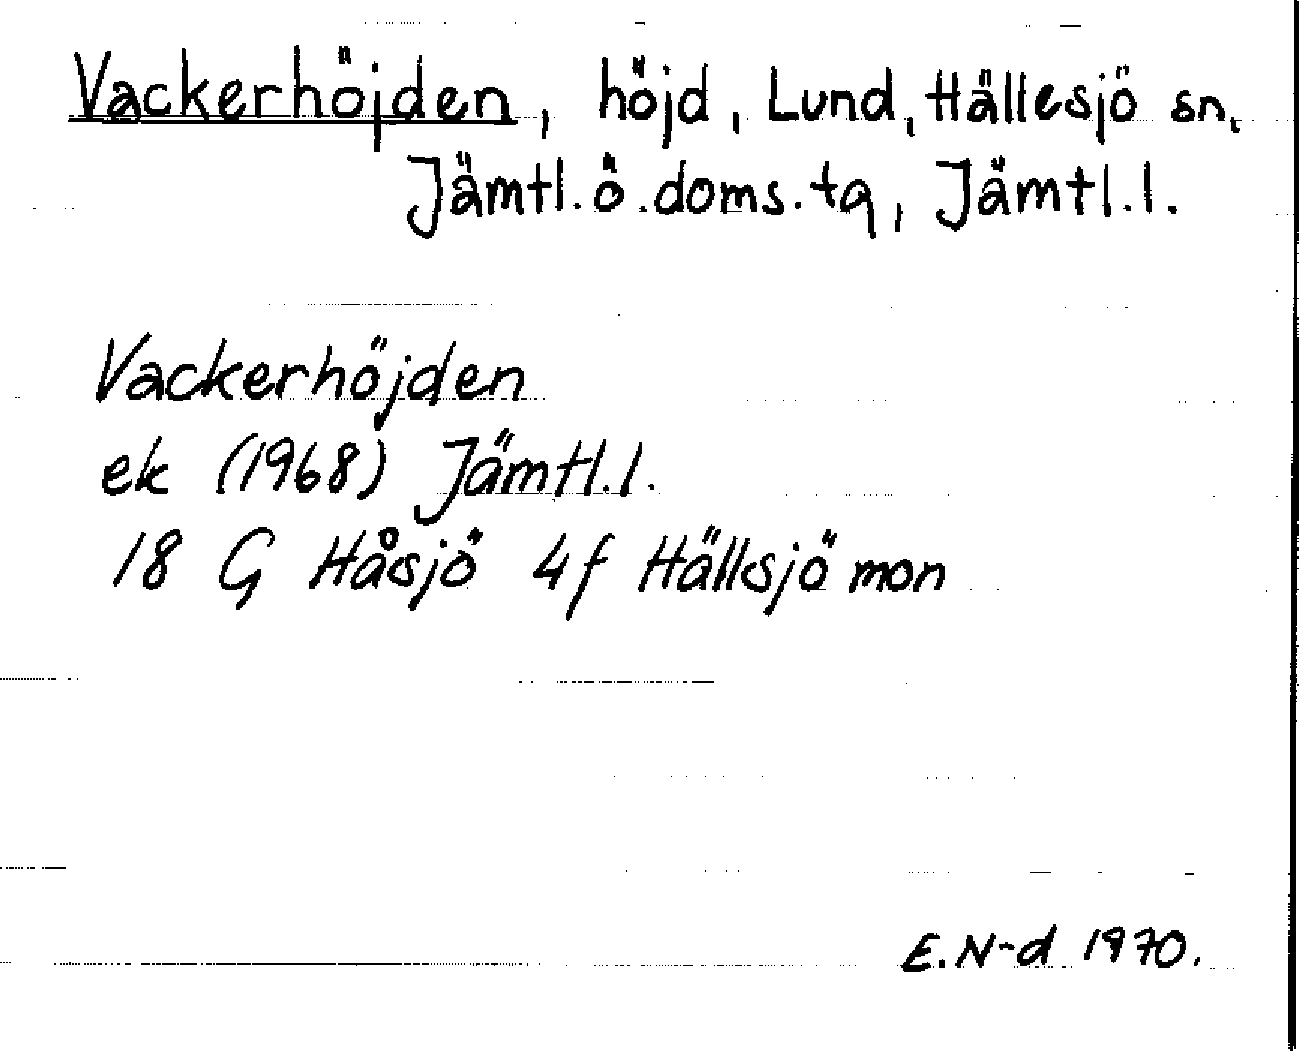 Vackerhöjden, höjd, Lund, Hällesjö sn,
Jämtl.ö.doms.tg, Jämtl.l.
Vackerhöjden
ek (1968) Jämtl.l.
18 G Håsjö 4f Hällesjö mon
E.N-d 1970.